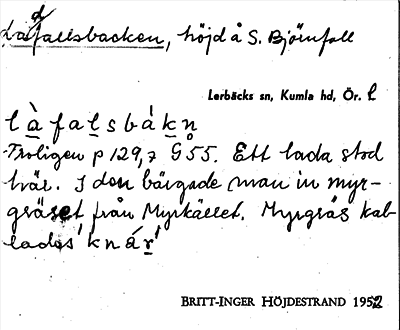 Ladfallsbacken, höjd å S. Björnfall
Lerbäcks sn, Kumla hd, Ör. L
l à f a l s b á k n
Troligen p 129,7 G 55. Ett lada stod
här. I den bärgade man in myr-
gräset från Myrkället. Myrgräs kal-
lades 'knár'
BRITT-INGER HÖJDESTRAND 1952